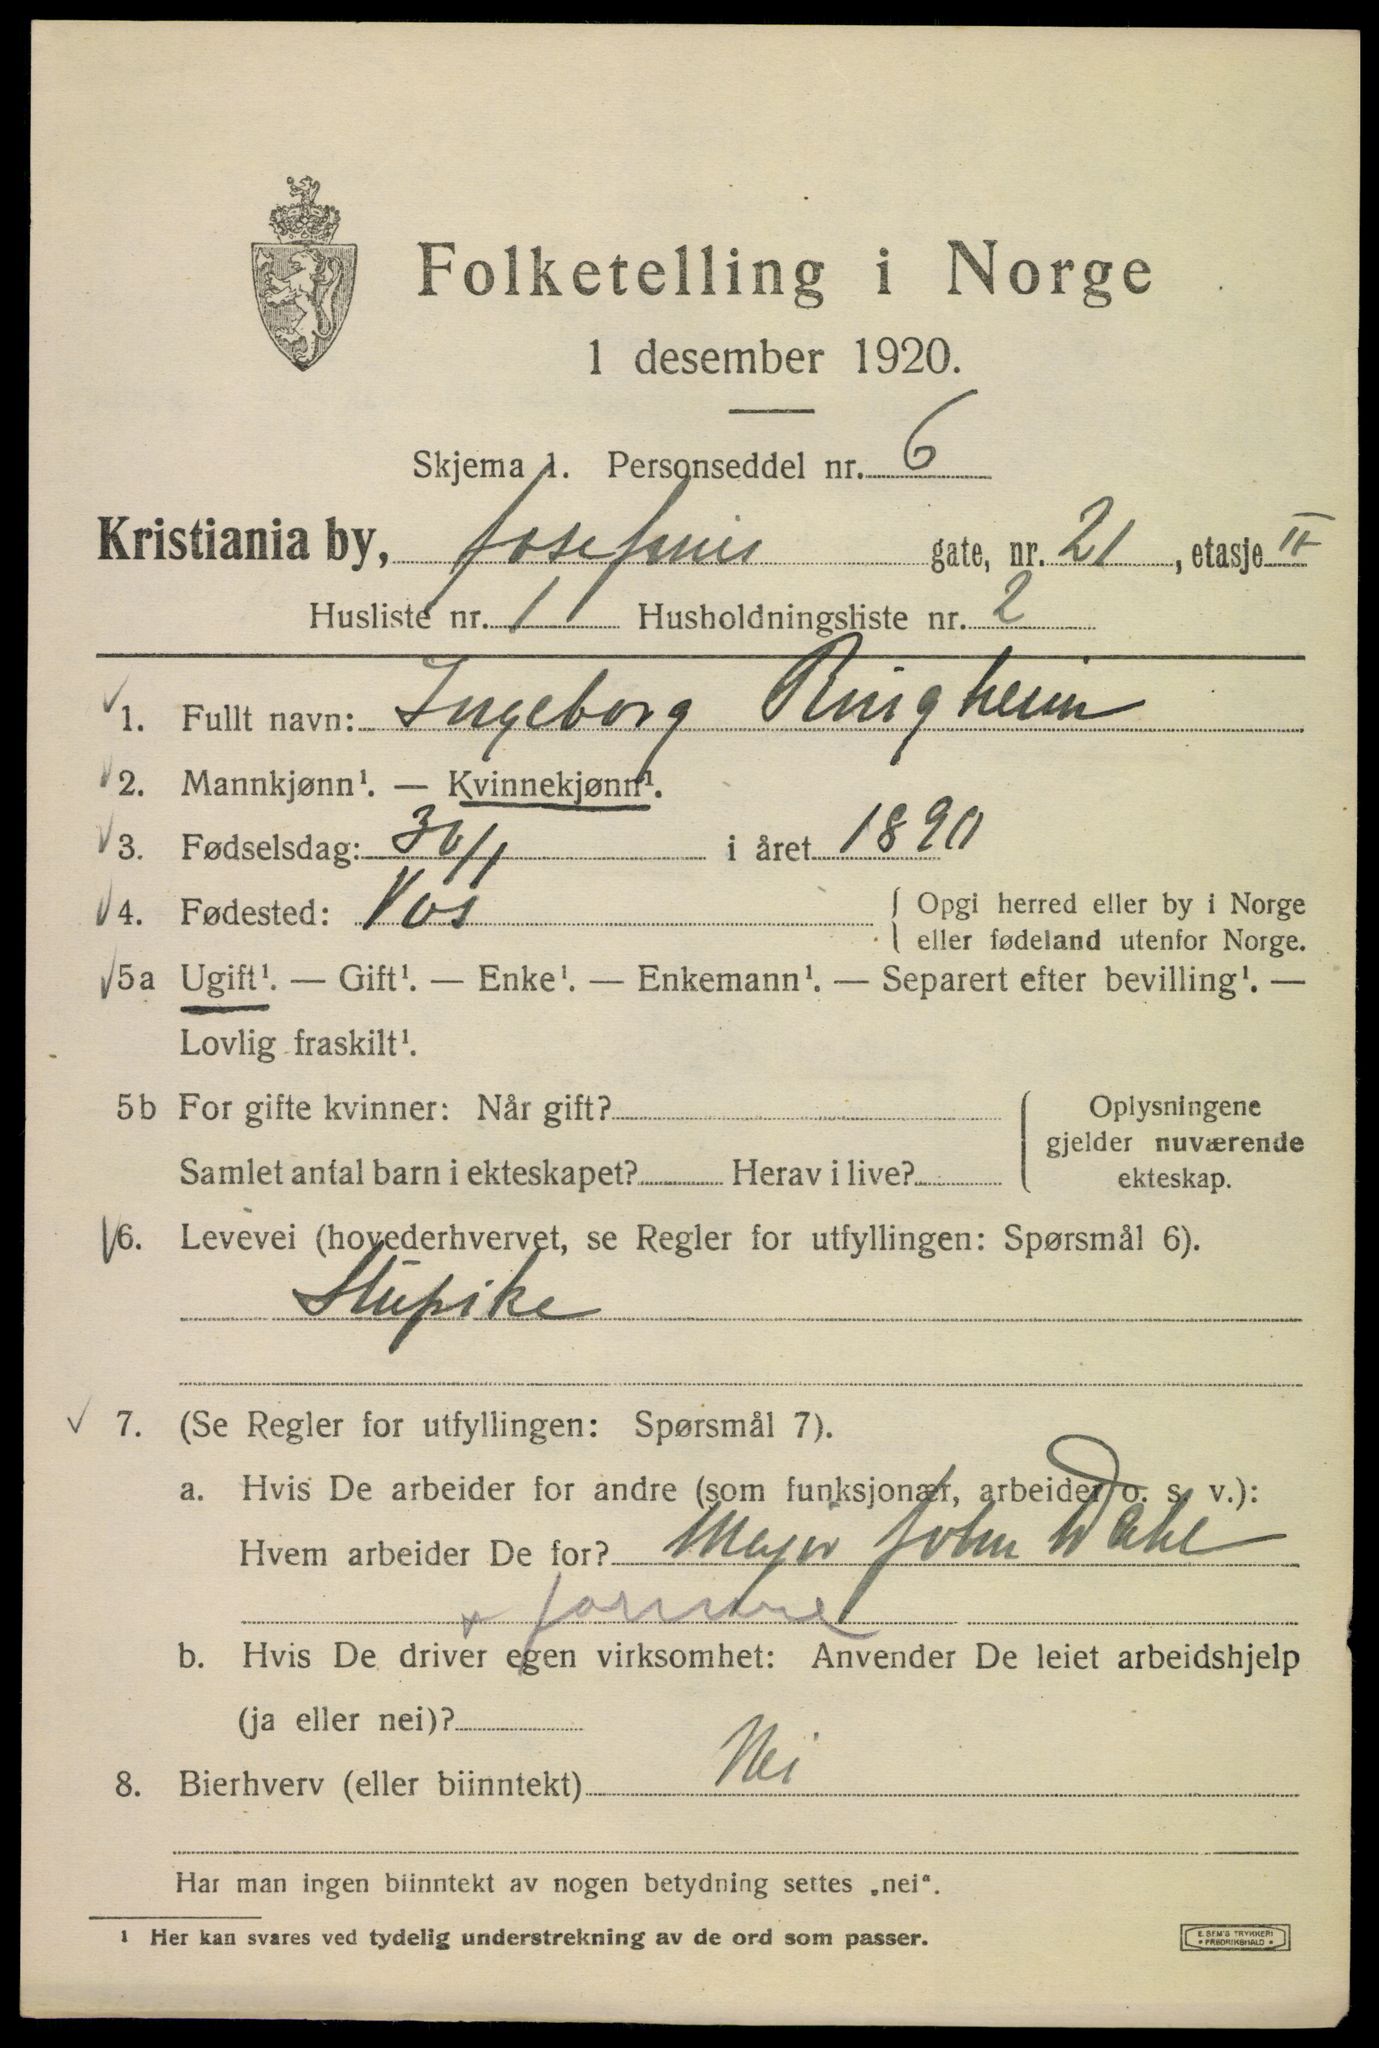 Folketelling i Norge
1 desember 1920.
Skjema 1. Personseddel nr. 6
Kristiania by, Josefines gate, nr. 21, etasje II
Husliste nr. 1 Husholdningsliste nr. 2
1. Fullt navn: Ingeborg Ringheim
2. Mannkjønn¹. — Kvinnekjønn¹.
3. Fødselsdag: 30/1 i året 1890
4. Fødested: Vos { Opgi herred eller by i Norge
eller fødeland utenfor Norge.
5a Ugift¹. — Gift¹. — Enke¹. — Enkemann¹. — Separert efter bevilling¹. —
Lovlig fraskilt¹.
5b For gifte kvinner: Når gift? { Oplysningene
gjelder nuværende
Samlet antal barn i ekteskapet? Herav i live? ekteskap.
6. Levevei (hovederhvervet, se Regler for utfyllingen: Spørsmål 6).
Stupike
7. (Se Regler for utfyllingen: Spørsmål 7).
a. Hvis De arbeider for andre (som funksjonær, arbeider o. s. v.):
Hvem arbeider De for? Major John Dahl
b. Hvis De driver egen virksomhet: Anvender De leiet arbeidshjelp
(ja eller nei)?
8. Bierhverv (eller biinntekt) Nei
Har man ingen biinntekt av nogen betydning settes „nei“.
¹ Her kan svares ved tydelig understrekning av de ord som passer.
E. SEM'S TRYKKERI
* FREDRIKSHALD *